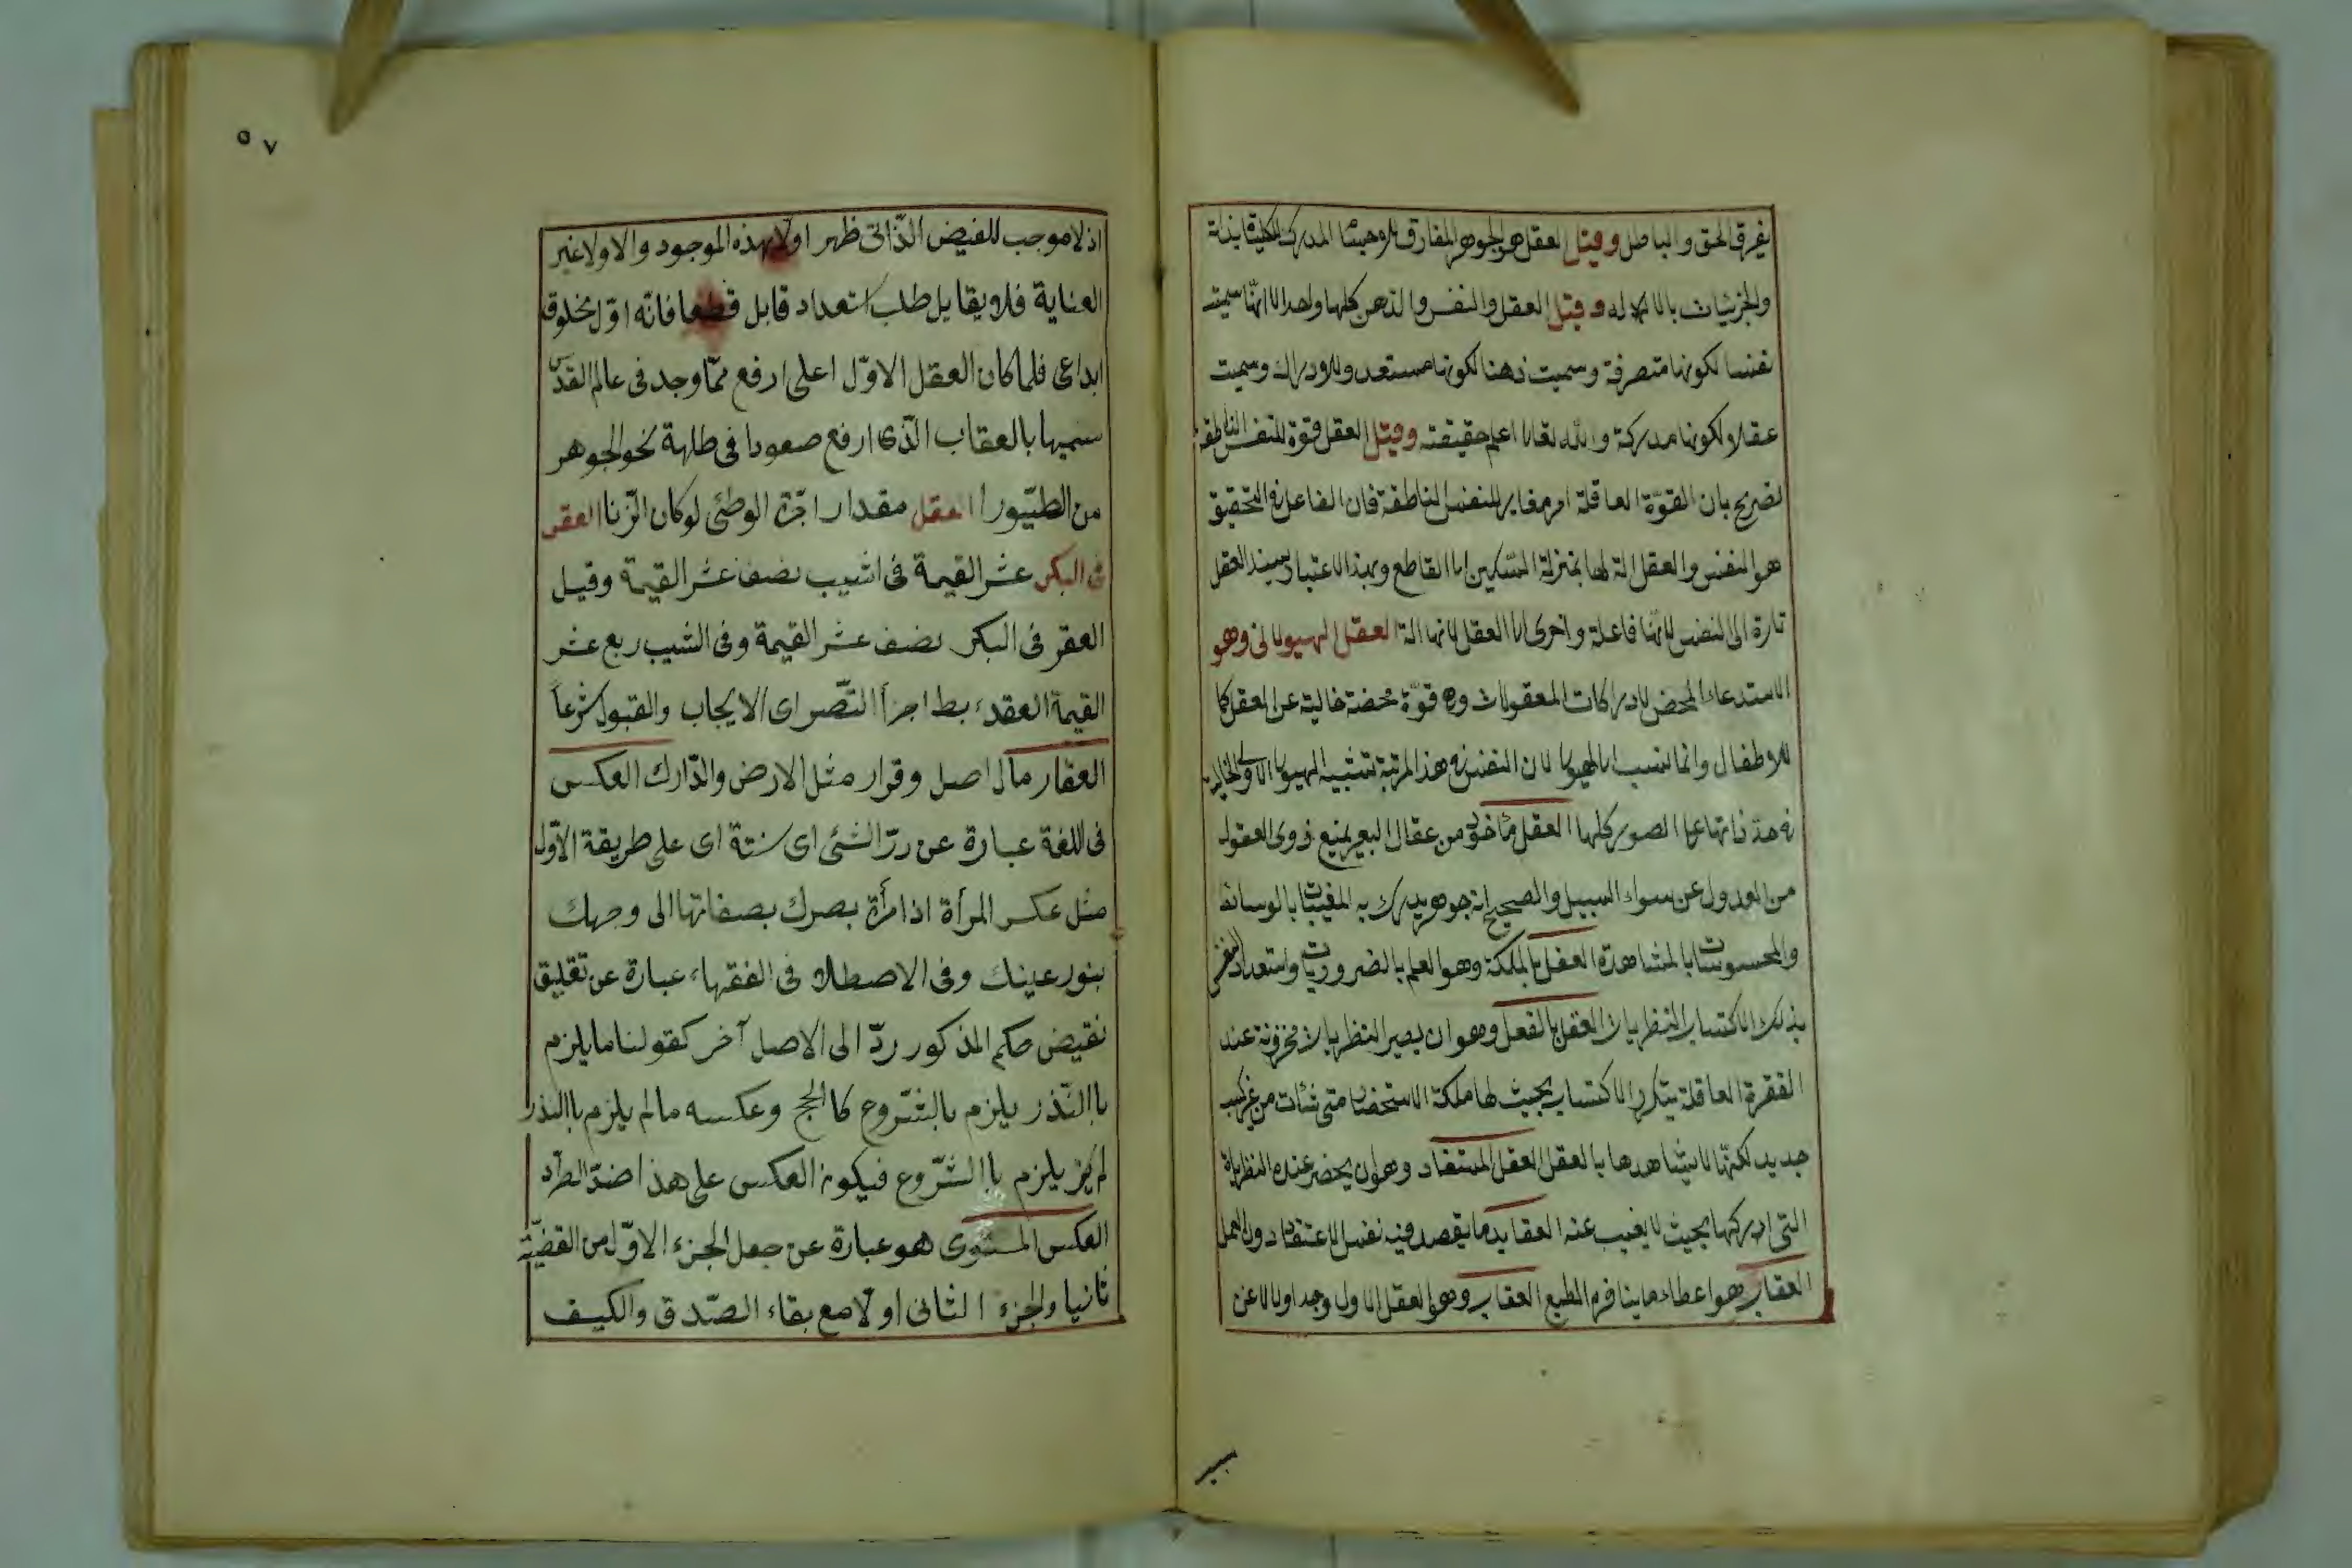 يفرق الحق والباطل وقيل العقل هو الجوهر المفارق للوحيثا المدرك الكلية بذاته
والجزئيات بالالاله وقيل العقل والنفس والذهن كلها واحد الا انها سميت
نفسا لكونها متصرفة وسميت ذهنا لكونها مستعده للادراك وسميت
عقلا لكونها مدركة والله تعالى اعلم حقيقته وقيل العقل قوة للنفس الناطقة
تصريح بان القوة العاقلة امر مغاير للنفس الناطقة فان الفاعل في التحقيق
هو النفس والعقل الة لها بمنزلة السكين الى القاطع وبهذا الاعتبار يسند العقل
تارة الى النفس لانها فاعلة واخرى الى العقل لانها الة العقل الهيولانى وهو
الاستدعاد المحض لادراكات المعقولات وهى قوة محضة خالية عن العقل كما
للاطفال وانما نسب الى الهيولى لان النفس فى هذا المرتبة تشبيه الهيولى الاولى الخالية
فى حد ذاتها عن الصور كلها العقل مأخوذ من عقال البعير يمنع ذوى العقول
من العدول عن سواء السبيل والصحيح انه جوهر يدرك به المغيبات بالوسائط
والمحسوسات بالمشاهدة العقل بالملكة وهو العلم بالضروريات واستعداد النفس
بذلك الاكتساب النظريات العقل بالفعل وهو ان يصير النظريات مخزونة عند
الفقرة العاقلة بتكرار الاكتساب بحيث لها ملكة الاستحضار متى شئات من غير كسب
جديد لكنها لا يشاهدها بالعقل العقل المستفاد وهو ان يحضر عنده النظرياة
التى ادركها بحيث لا يغيب عنه العقايد ما يقصد فيه نفس الاعتقاد دون العمل
العقاب هو اعطاء ما ينافر م الطبع العقاب وهو العقل الاول وجد اولا لا عن
سبير
٥٧
اذ لا موجب للفيض الذّاتى ظهر اولا بهذه الموجود والاولا غير
العناية فلا يقايل طلب استعداد قابل قطعا فانّه اوّل مخلوق
ابداعى فلما كان العقل الاوّل اعلى ارفع ممّا وجد فى عالم القدس
سميها بالعقاب الذّى ارفع صعودا فى طلهة نحو الجوهر
من الطيّورا العقل مقدار اجرّة الوطئى لو كان الزّنا العقر
فى البكر عشر القيمة فى اشيب نصف عشر القيمة وقيل
العقر فى البكر نصف عشر القيمة وفى الشيب ربع عشر
القيمة العقدء بط اجزأ التّصراى الايجاب والقبول شرعا
العقار مالہ اصل وقرار مثل الارض والدّارك العكس
فى اللغة عبارة عن ردّ الشئى اى سنتة اى على طريقة الاوّل
مثل عكس المرأة اذا مرأة بصرك بصفاتها الى وجهك
بنور عينك وفى الاصطلاد فى الفقهاء عبارة عن تعليق
نقيض حكم المذكور ردّ الى الاصل آخر كقولنا ما يلزم
باالنّذر يلزم بالشّروع كا الحج وعكسه مالم يلزم باالنذر
لم يلزم باالشّروع فيكون العكس على هذا ضدّ الطرّد
العكس المستوى هو عبارة عن جعل الجزء الاوّل من القضيّة
ثانيا والجزء الثانى اولا مع بقاء الصّدق والكيف